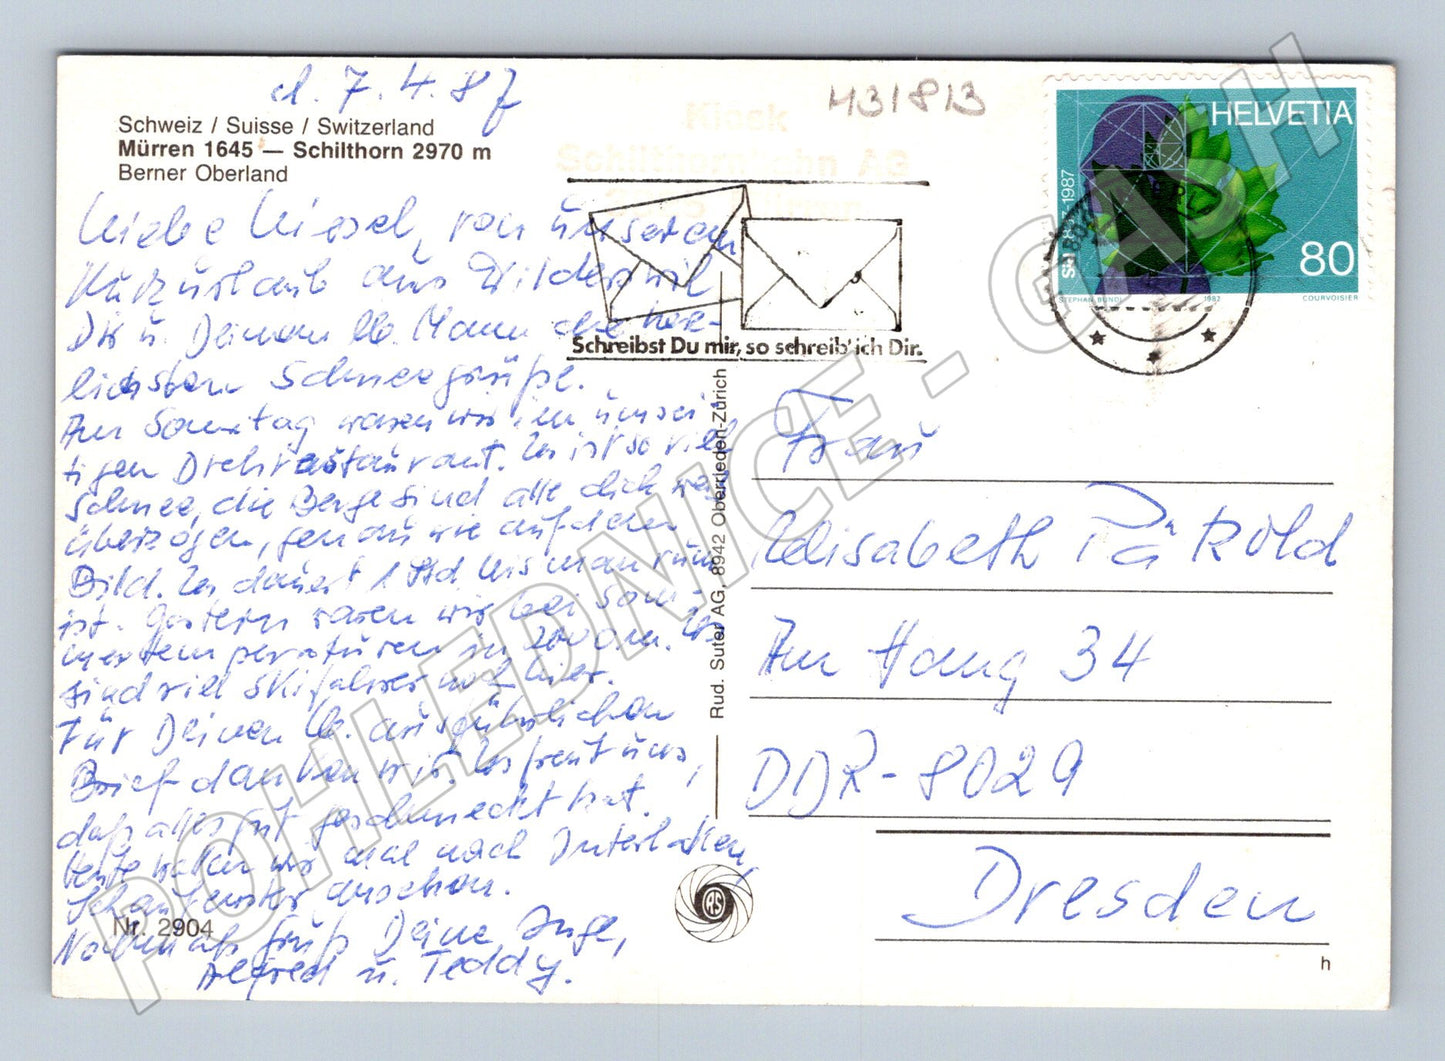 d. 7.4.87
Schweiz / Suisse / Switzerland
Mürren 1645 — Schilthorn 2970 m
Berner Oberland
431813
Kiosk
Schilthornbahn AG
HELVETIA
1987
80
STEPHAN BUNDI 1987 COURVOISIER
Schreibst Du mir, so schreib' ich Dir.
Liebe, von unserem
Kurzurlaub aus Wilderswil
Dir u. Deinem lb. Mann die herz-
lichsten Schneegrüße.
Am Sonntag waren wir im
Drehrestaurant. Es ist so viel
Schnee, die Berge sind alle dick weiß
überzogen, genau wie auf dem
Bild. Es dauert 1 Std bis man rum
ist. Gestern waren wir bei Som-
mertemperaturen in 2000 m. Es
sind viel Skifahrer noch hier.
Für Deinen lb. ausführlichen
Brief danken wir. Es freut uns,
daß alles gut geschmeckt hat.
Heute wollen wir mal nach Interlaken,
Schaufenster anschen.
Nochmals Gruß Deine Inge,
Alfred u. Teddy.
Nr. 2904
Rud. Suter AG, 8942 Oberrieden-Zürich
RS
Frau
Elisabeth Pätzold
Am Hang 34
DDR-8029
Dresden
h
POHLEDNICE - CASH